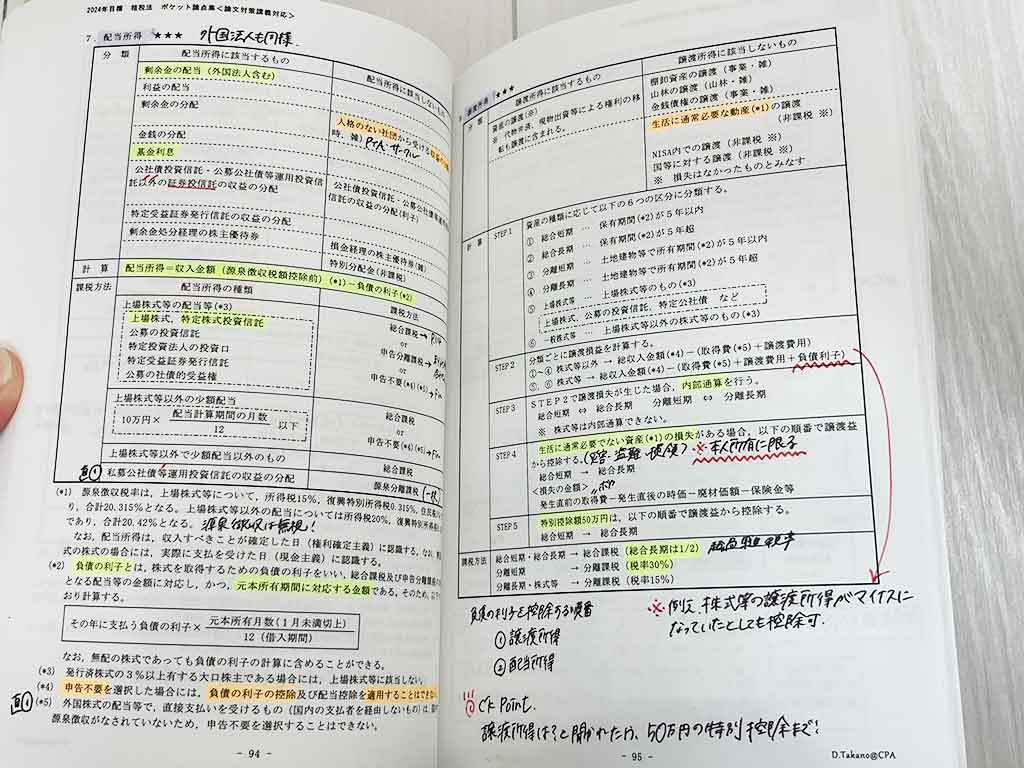 2024年目標 租税法 ポケット論点集<論文対策講義対応>
7. 配当所得 ★★★ 外国法人も同様.
分類 配当所得に該当するもの 配当所得に該当しないもの
剰余金の配当(外国法人含む)
利益の配当
剰余金の分配
人格のない社団から受ける
金銭の分配 時、雑) PTA・サークル
基金利息
公社債投資信託・公募公社債等運用投資信託以外の証券投信託の収益の分配
公社債投資信託・公募公社債等運用
信託の収益の分配(利子)
特定受益証券発行信託の収益の分配
剰余金処分経理の株主優待券 損金経理の株主優待券(雑)
特別分配金(非課税)
計算 配当所得=収入金額(源泉徴収税額控除前)(*1)-負債の利子(*2)
課税方法 配当所得の種類 課税方法
上場株式等の配当等(*3)
上場株式,特定株式投資信託
公募の投資信託
特定投資法人の投資口
特定受益証券発行信託
公募の社債的受益権
総合課税
or
申告分離課税
or
申告不要(*4)(*5)
上場株式等以外の少額配当
10万円× 配当計算期間の月数 / 12 以下
総合課税
or
申告不要(*4)(*5)
上場株式等以外で少額配当以外のもの 総合課税
私募公社債等運用投資信託の収益の分配 源泉分離課税
(*1) 源泉徴収税率は,上場株式等について,所得税15%,復興特別所得税0.315%,住民
り,合計20.315%となる。上場株式等以外の配当については所得税20%,復興特別所得税
であり,合計20.42%となる。 源泉徴収は無視!
なお,配当所得は,収入すべきことが確定した日(権利確定主義)に認識する。なお,
式の株式の場合には,実際に支払を受けた日(現金主義)に認識する。
(*2) 負債の利子とは,株式を取得するための負債の利子をいい,総合課税及び申告分離課税の
となる配当等の金額に対応し,かつ,元本所有期間に対応する金額である。そのため,以下の
おり計算する。
その年に支払う負債の利子× 元本所有月数(1月未満切上) / 12(借入期間)
なお,無配の株式であっても負債の利子の計算に含めることができる。
(*3) 発行済株式の3%以上有する大口株主である場合には,上場株式等に該当しない。
(*4) 申告不要を選択した場合には,負債の利子の控除及び配当控除を適用することはできない
(*5) 外国株式の配当等で,直接支払いを受けるもの(国内の支払者を経由しないもの)は,
源泉徴収がなされていないため,申告不要を選択することはできない。
- 94 -
譲渡所得 ★★★
分類 譲渡所得に該当するもの 譲渡所得に該当しないもの
資産の譲渡(※)
※ 代物弁済,現物出資等による権利の移
転も譲渡に含まれる。
棚卸資産の譲渡(事業・雑)
山林の譲渡(山林・雑)
金銭債権の譲渡(事業・雑)
生活に通常必要な動産(*1)の譲渡
(非課税 ※)
NISA内での譲渡(非課税 ※)
国等に対する譲渡(非課税 ※)
※ 損失はなかったものとみなす
計算 STEP1 資産の種類に応じて以下の6つの区分に分類する。
① 総合短期 … 保有期間(*2)が5年以内
② 総合長期 … 保有期間(*2)が5年超
③ 分離短期 … 土地建物等で所有期間(*2)が5年以内
④ 分離長期 … 土地建物等で所有期間(*2)が5年超
⑤ 上場株式等 … 上場株式等のもの(*3)
上場株式,公募株式等投資信託,特定公社債 など
⑥ 一般株式等 … 上場株式等以外の株式等のもの(*3)
STEP2 分類ごとに譲渡損益を計算する。
①~④ 株式等以外 → 総収入金額(*4)-(取得費(*5)+譲渡費用)
⑤、⑥ 株式等 → 総収入金額(*4)-(取得費(*5)+譲渡費用+負債利子)
STEP3 STEP2で譲渡損失が生じた場合,内部通算を行う。
総合短期 ⇔ 総合長期 分離短期 ⇔ 分離長期
※ 株式等は内部通算できない。
STEP4 生活に通常必要でない資産(*1)の損失がある場合,以下の順番で譲渡益
から控除する。(災害・盗難・横領) ※本人所有に限る
総合短期 → 総合長期
<損失の金額>
発生直前の取得費-発生直後の時価-廃材価額-保険金等
STEP5 特別控除額50万円は,以下の順番で譲渡益から控除する。
総合短期 → 総合長期
課税方法 総合短期・総合長期 → 総合課税(総合長期は1/2)
分離短期 → 分離課税(税率30%)
分離長期・株式等 → 分離課税(税率15%)
負債の利子を控除する順番
①譲渡所得
②配当所得
※ 例え、株式等の譲渡所得がマイナスに
なっていたとしても控除可.
CK Point.
譲渡所得は?と聞かれたら、50万円の特別控除まで!
- 95 -
D.Takano@CPA